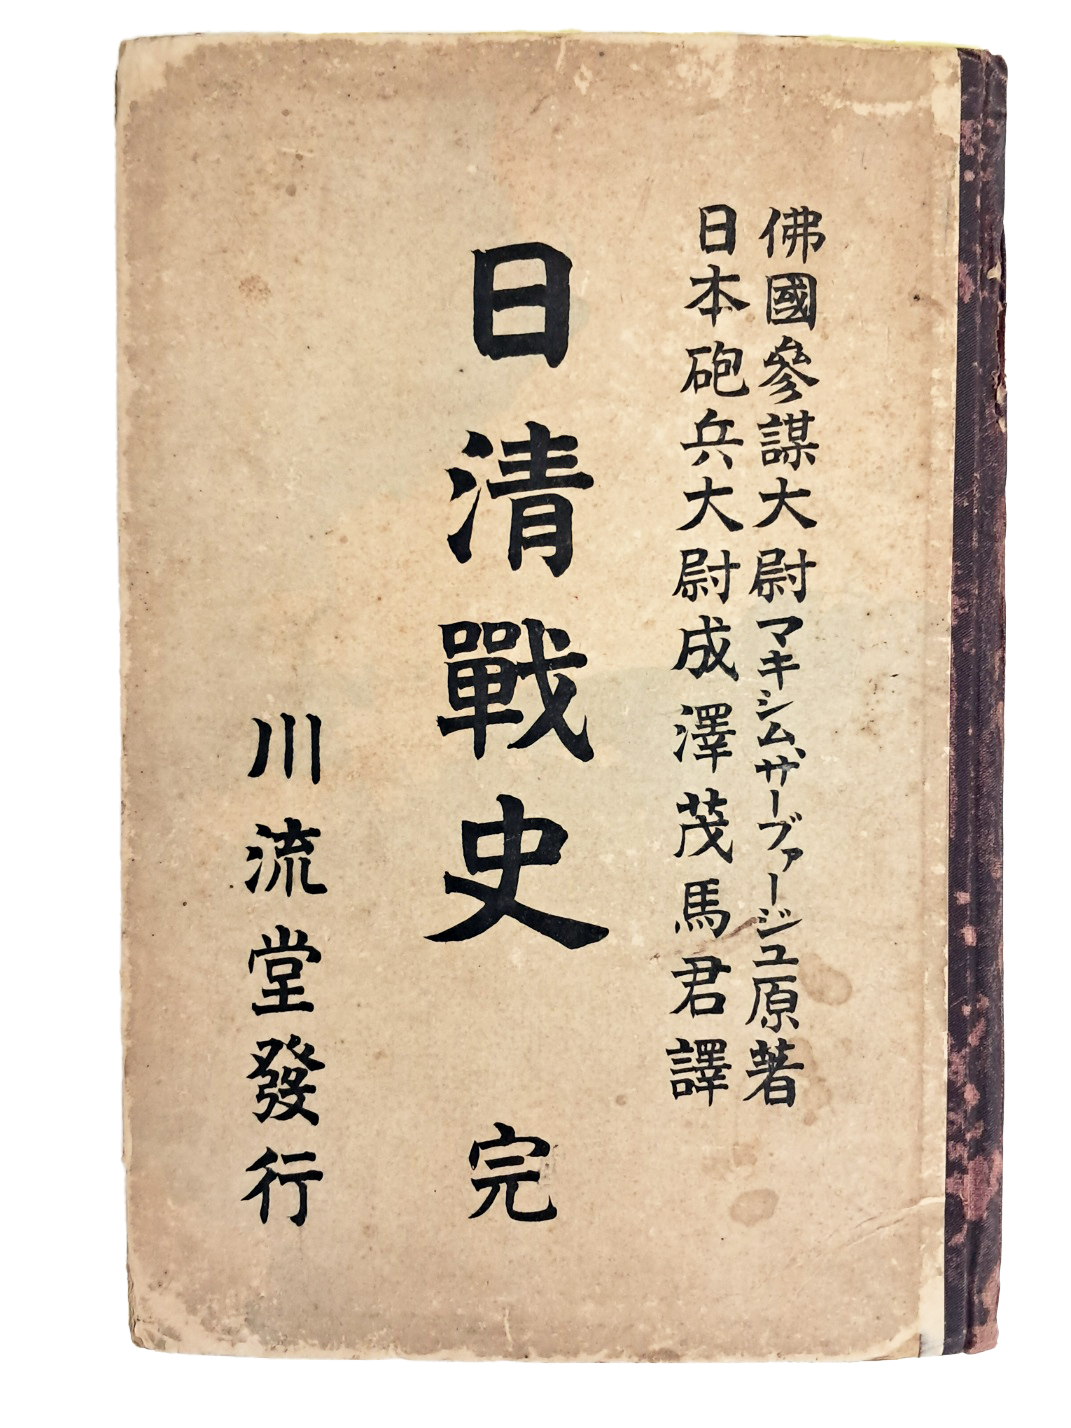 佛國參謀大尉マキシム、ザーブァージュ原著
日本砲兵大尉成澤茂馬君譯
日清戰史 完
川流堂發行